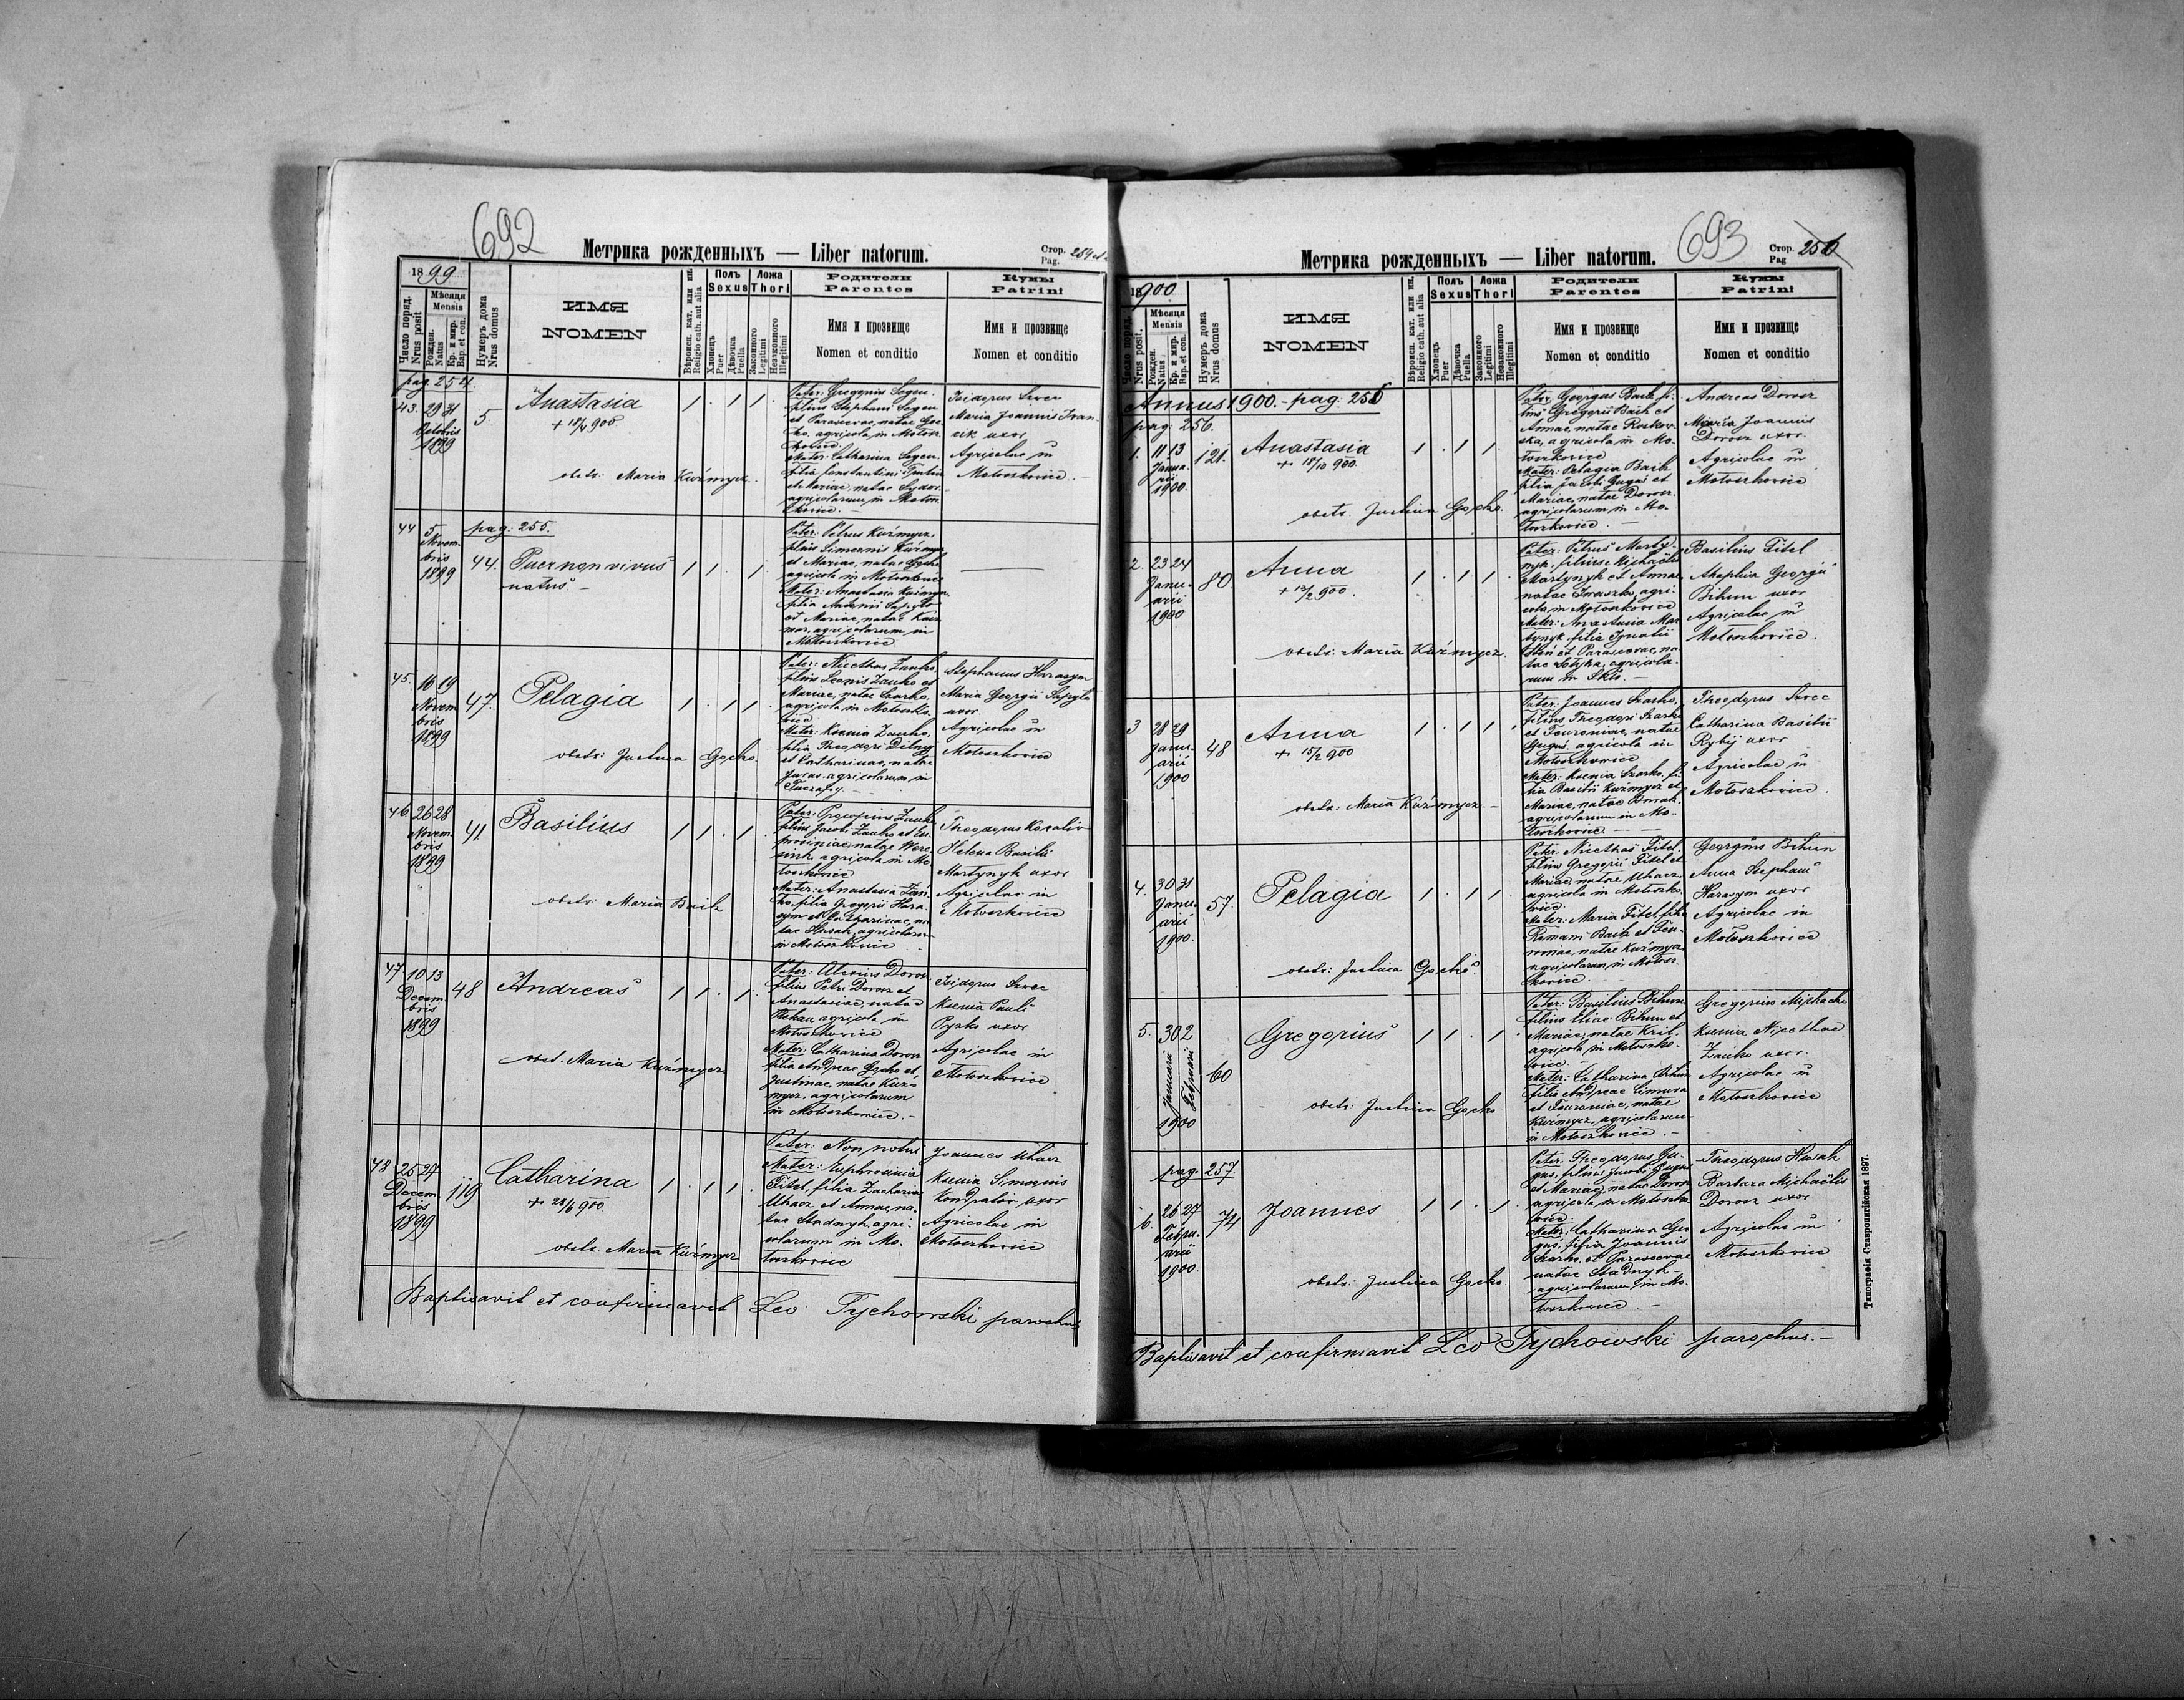 692
Метрика рожденныхъ — Liber natorum.
Стор.
Pag.
1899
Число поряд.
Nrus posit
Мѣсяця
Mensis
Рожден.
Natus
Кр. и мир.
Bap. et con.
Нумеръ дома
Nrus domus
ИМЯ
NOMEN
Вѣроисп. кат. или ин.
Religio cath. aut alia
Полъ
Sexus
Хлопець
Puer
Дѣвочка
Puella
Ложа
Thori
Законного
Legitimi
Незаконного
Illegitimi
Родители
Parentes
Имя и прозвище
Nomen et conditio
Кумы
Patrini
Имя и прозвище
Nomen et conditio
pag. 254.
43. 29 31
Octobris
1899
5
Anastasia
+ 900
obstr. Maria Kuźmycz.
Pater: Gregorius
filius Stephani
et Parascevae, natae
agricola in Motosz-
kovice
Mater: Catharina
filia Constantini
et Mariae, natae
agricolarum in Motosz-
kovice. —
Isidorus Szwec
Maria Joannis Iwan-
cik uxor
Agricolae in
Motoszkovice. —
44
5
Novem-
bris
1899
pag: 255.
44.
Puer non vivus
natus
Pater: Petrus Kuźmycz,
filius Simeonis Kuźmycz
et Mariae, natae
agricola in Motoszkovice
Mater: Anastasia Kuźmycz
filia Antonii
et Mariae, natae
agricolarum in
Motoszkovice
45. 16 19
Novem-
bris
1899
47.
Pelagia
obstr: Justina Gocko.
Pater: Nicethas Zauko
filius Leonis Zauko et
Mariae, natae
agricola in Motoszko-
vice
Mater: Ksenia Zauko,
filia Theodori
et Catharinae, natae
agricolarum in
Stephanus Harasym
Maria Georgii
uxor
Agricolae in
Motoszkovice
46. 26 28
Novem-
bris
1899
41
Basilius
obstr: Maria Baik
Pater: Procopius Zauko
filius Jacobi Zauko et Eu-
phrosiniae, natae
agricola in Mo-
toszkovice
Mater: Anastasia Zau-
ko, filia Gregorii Hara-
sym et Catharinae, na-
tae Husak, agricolarum
in Motoszkovice
Theodorus
Helena Basilii
Martynyk uxor
Agricolae in
Motoszkovice
47 10 13
Decem-
bris
1899
48
Andreas
obst. Maria Kuźmycz
Pater: Alexius Dorosz
filius Petri Dorosz et
Anastasiae, natae
agricola in
Motoszkovice
Mater: Catharina Dorosz
filia Andreae Gocko et
Justinae, natae Kuź-
mycz, agricolarum
in Motoszkovice. —
Isidorus Szwec
Ksenia Pauli
uxor
Agricolae in
Motoszkovice
48 25 27
Decem-
bris
1899
119
Catharina
+ 28/6 900
obstr. Maria Kuźmycz
Pater: Non notus
Mater: Euphrosinia
Fitel, filia Zachariae
et Annae, na-
tae Stadnyk, agri-
colarum in Mo-
toszkovice
Joannes
Ksenia Simeonis
Kondrativ uxor
Agricolae in
Motoszkovice
Baptisavit et confirmavit Leo Tychowski parochus
693
Метрика рожденныхъ — Liber natorum.
Стор.
Pag
256
1900
Число поряд.
Nrus posit.
Мѣсяця
Mensis
Рожден.
Natus
Кр. и мир.
Bap. et con.
Нумеръ дома
Nrus domus
ИМЯ
NOMEN
Вѣроисп. кат. или ин.
Religio cath. aut alia
Полъ
Sexus
Хлопець
Puer
Дѣвочка
Puella
Ложа
Thori
Законного
Legitimi
Незаконного
Illegitimi
Родители
Parentes
Имя и прозвище
Nomen et conditio
Кумы
Patrini
Имя и прозвище
Nomen et conditio
Annus 1900. - pag: 256
pag: 256.
1. 11 13
Janua-
rii
1900.
121.
Anastasia
+ 18/10 900.
obstr. Justina Gocko.
Pater: Georgius Baik fi-
lius Gregorii Baik et
Annae, natae
agricola in Mo-
toszkovice
Mater: Pelagia Baik
filia Jacobi Gugus et
Mariae, natae Dorosz.
agricolarum in Mo-
toszkovice. —
Andreas Dorosz
Maria Joannis
Dorosz uxor.
Agricolae in
Motoszkovice
2. 23 24
Janu-
arii
1900
80
Anna
+ 13/2 900.
obstr: Maria Kuźmycz.
Pater: Petrus Marty-
nyk, filius Michaëlis
Martynyk et Annae,
natae agri-
cola in Motoszkovice
Mater: Anastasia Mar-
tynyk filia Ignatii
et Parascevae, na-
tae agricola-
rum in —
Basilius Fitel
Agaphia Georgii
Bihun uxor
Agricolae in
Motoszkovice.
3 28 29
Janu-
arii
1900
48
Anna
+ 15/2 900
obstr. Maria Kuźmycz. —
Pater: Joannes Szarko,
filius Theodori Szarko
et Fevroniae, natae
Gugus, agricola in
Motoszkovice
Mater: Ksenia Szarko, fi-
lia Basilii Kuźmycz et
Mariae, natae
agricolarum in Mo-
toszkovice. —
Theodorus Szwec
Catharina Basilii
Rybij uxor
Agricolae in
Motoszkovice.
4. 30 31
Janu-
arii
1900.
57.
Pelagia
obstr: Justina Gocko.
Pater: Nicethas Fitel,
filius Gregorii Fitel et
Mariae, natae
agricola in Motoszko-
vice.
Mater: Maria Fitel, filia
Romani Baik et Fev-
roniae, natae Kuźmycz
agricolarum in Motosz-
kovice. —
Georgius Bihun
Anna Stephani
Harasym uxor
Agricolae in
Motoszkovice
5. 30 2
Januarii
Februarii
1900
60
Gregorius
obstr: Justina Gocko
Pater: Basilius Bihun
filius Eliae Bihun et
Mariae, natae
agricola in Motoszko-
vice
Mater: Catharina Bihun
filia Andreae
et Fevroniae, natae
Kuźmycz, agricolarum
in Motoszkovice. —
Gregorius
Ksenia Nicethae
Zauko uxor.
Agricolae in
Motoszkovice
pag. 257
6. 26 27
Febru-
arii
1900.
74
Joannes
obstr: Justina Gocko.
Pater: Theodorus Gu-
gus, filius Jacobi Gugus
et Mariae, natae Dorosz
agricola in Motoszko-
vice.
Mater: Catharina Gu-
gus, filia Joannis
Szarko et Parascevae
natae Stadnyk —
agricolarum in Mo-
toszkovice. —
Theodorus Husak
Barbara Michaëlis
Dorosz uxor
Agricolae in
Motoszkovice
Baptisavit et confirmavit Leo Tychowski parochus. —
Типографія Ставропигійская 1897.